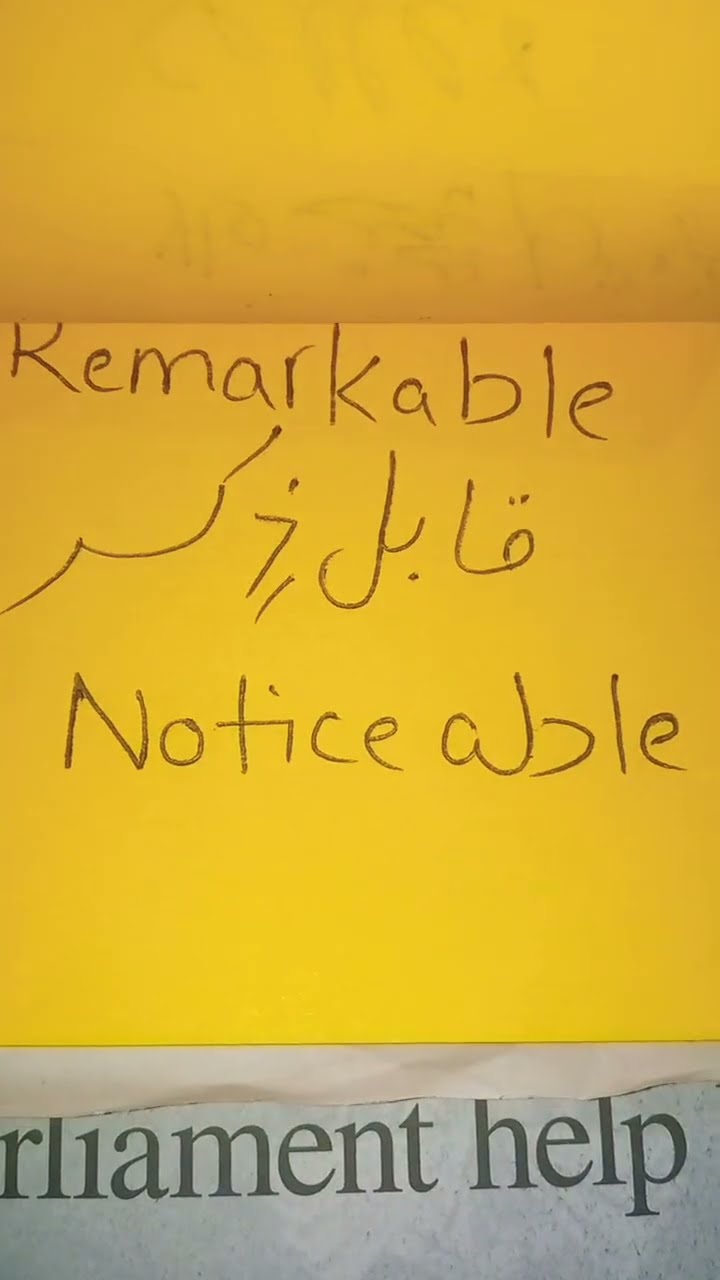 Remarkable
قابل ذِکر
Notice able
rliament help